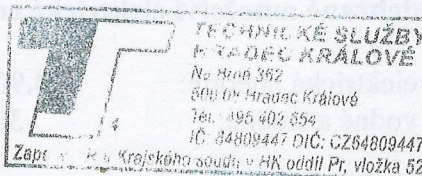 TECHNICKÉ SLUŽBY
HRADEC KRÁLOVÉ
Na Brně 362
500 08 Hradec Králové
Tel.: 495 402 654
IČ: 64809447 DIČ: CZ64809447
Krajského soudu v HK oddíl Pr, vložka 52
4
elektrická
vodné a